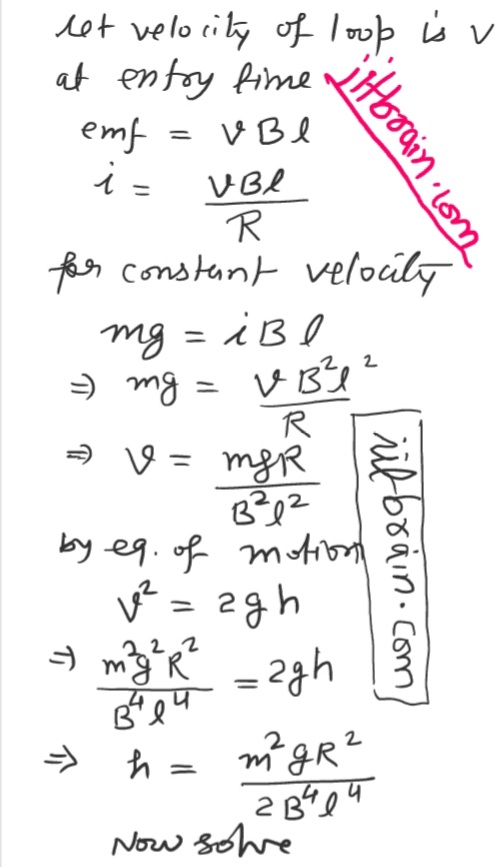 let velocity of loop is v
at entry time
iitbrain.com
emf = vBl
i = vBl/R
for constant velocity
mg = iBl
⇒ mg = vB²l²/R
⇒ v = mgR/B²l²
iitbrain.com
by eq. of motion
v² = 2gh
⇒ m²g²R²/B⁴l⁴ = 2gh
⇒ h = m²gR²/2B⁴l⁴
Now solve